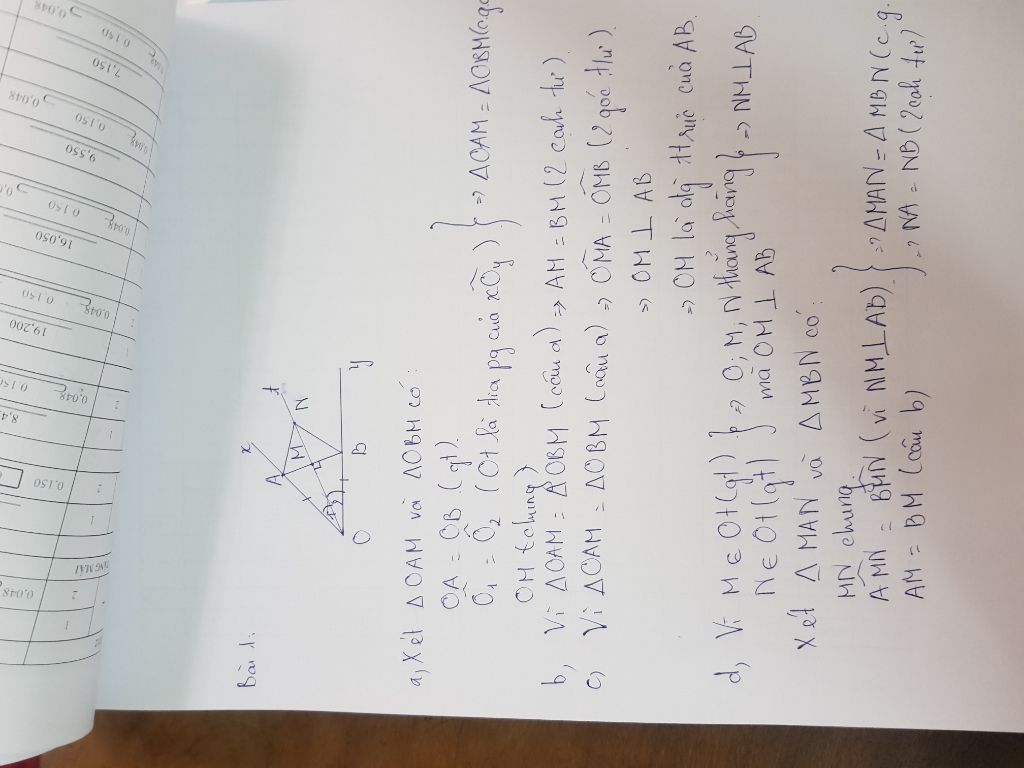 Bài 1:
x
A
t
M
N
O
B
y
a, Xét ΔOAM và ΔOBM có:
OA = OB (gt)
Ô1 = Ô2 (Ot là tia pg của xÔy) } => ΔOAM = ΔOBM (c.g.c
OM chung
b, Vì ΔOAM = ΔOBM (câu a) => AM = BM (2 cạnh tư)
c, Vì ΔOAM = ΔOBM (câu a) => OMA = OMB (2 góc tư)
=> OM ⊥ AB
=> OM là đg trực của AB.
d, Vì M ∈ Ot (gt) } => O; M, N thẳng hàng } => NM ⊥ AB
N ∈ Ot (gt) mà OM ⊥ AB
Xét ΔMAN và ΔMBN có:
MN chung
AMN = BMN (vì NM ⊥ AB) } => ΔMAN = ΔMBN (c.g.
AM = BM (câu b) => NA = NB (2 cạh tư)
TỔNG MÁI
1
2
0,048
1
2
0,150
1
2
0,048
0,150
19,200
0,048
0,150
16,050
0,048
0,150
9,550
0,048
0,150
7,150
0,048
0,150